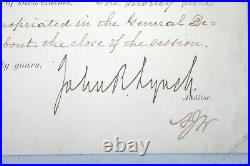 The money were
ropriated in the General De-
bout the close of the session.
ly yours.
John R. Lynch
Auditor.